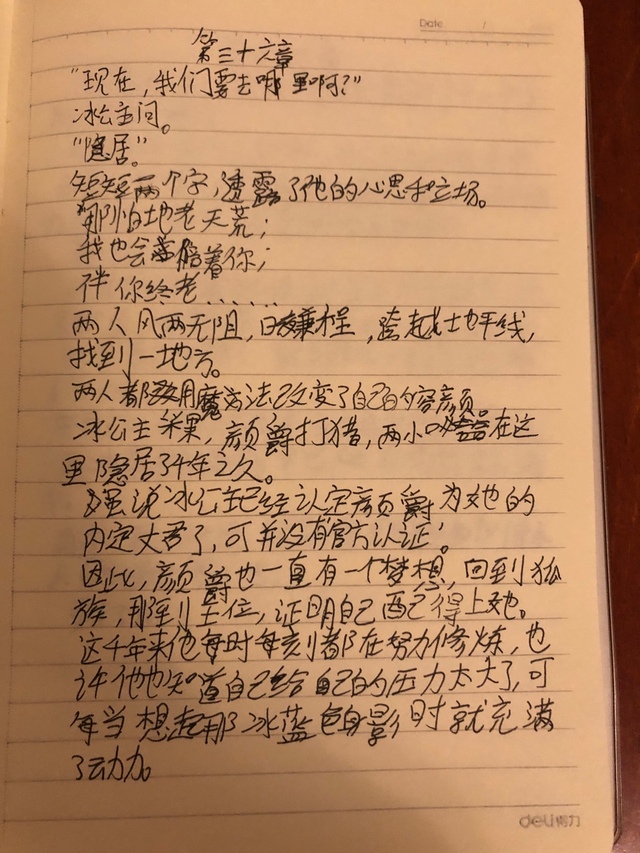 Date. /
第三十六章
"现在，我们要去哪里啊？"
冰公主问。
"隐居"。
短短两个字，透露了他的心思和立场。
"那怕地老天荒；
我也会陪着你；
伴你终老……
两人风雨无阻，日夜兼程，跨越地平线，
找到一地方。
两人都用魔法改变了自己的容颜
冰公主采果，颜爵打猎，两小口在这
里隐居了千年之久。
虽说冰公主已经认定颜爵为她的
内定丈君了，可并没有官方认证！
因此，颜爵也一直有一个梦想，回到狐
族，那到王位，证明自己配得上她。
这千年来他每时每刻都在努力修炼，也
许他也知道自己给自己的压力太大了，可
每当想起那冰蓝色身影时就充满
了动力。
deli得力